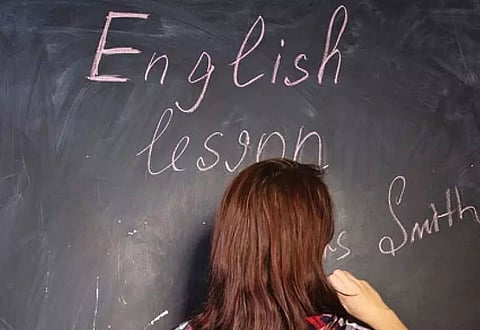 English
lesson
rs Smith